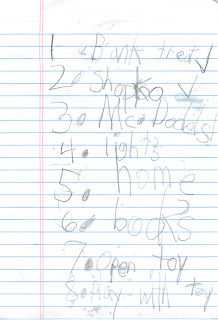 1. Bank treat ✓
2. Shopko ✓
3. McDodels!
4. lights
5. home
6. books
7. Open toy
8. Play with toy